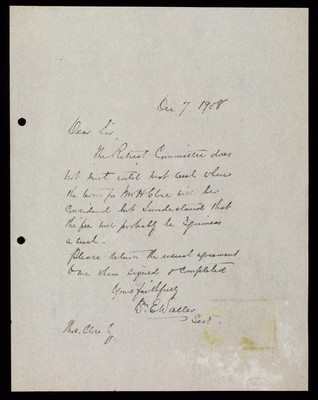 Dec 7. 1908
Dear Sir,
The Retreat Committee does
not meet until next week when
the terms for Mr H Clee will be
considered but I understand that
the fee will probably be 3 guineas
a week.
Please return the usual agreement
to me when signed & completed
Yours faithfully
E Waller
Sec.
Thos. Clee